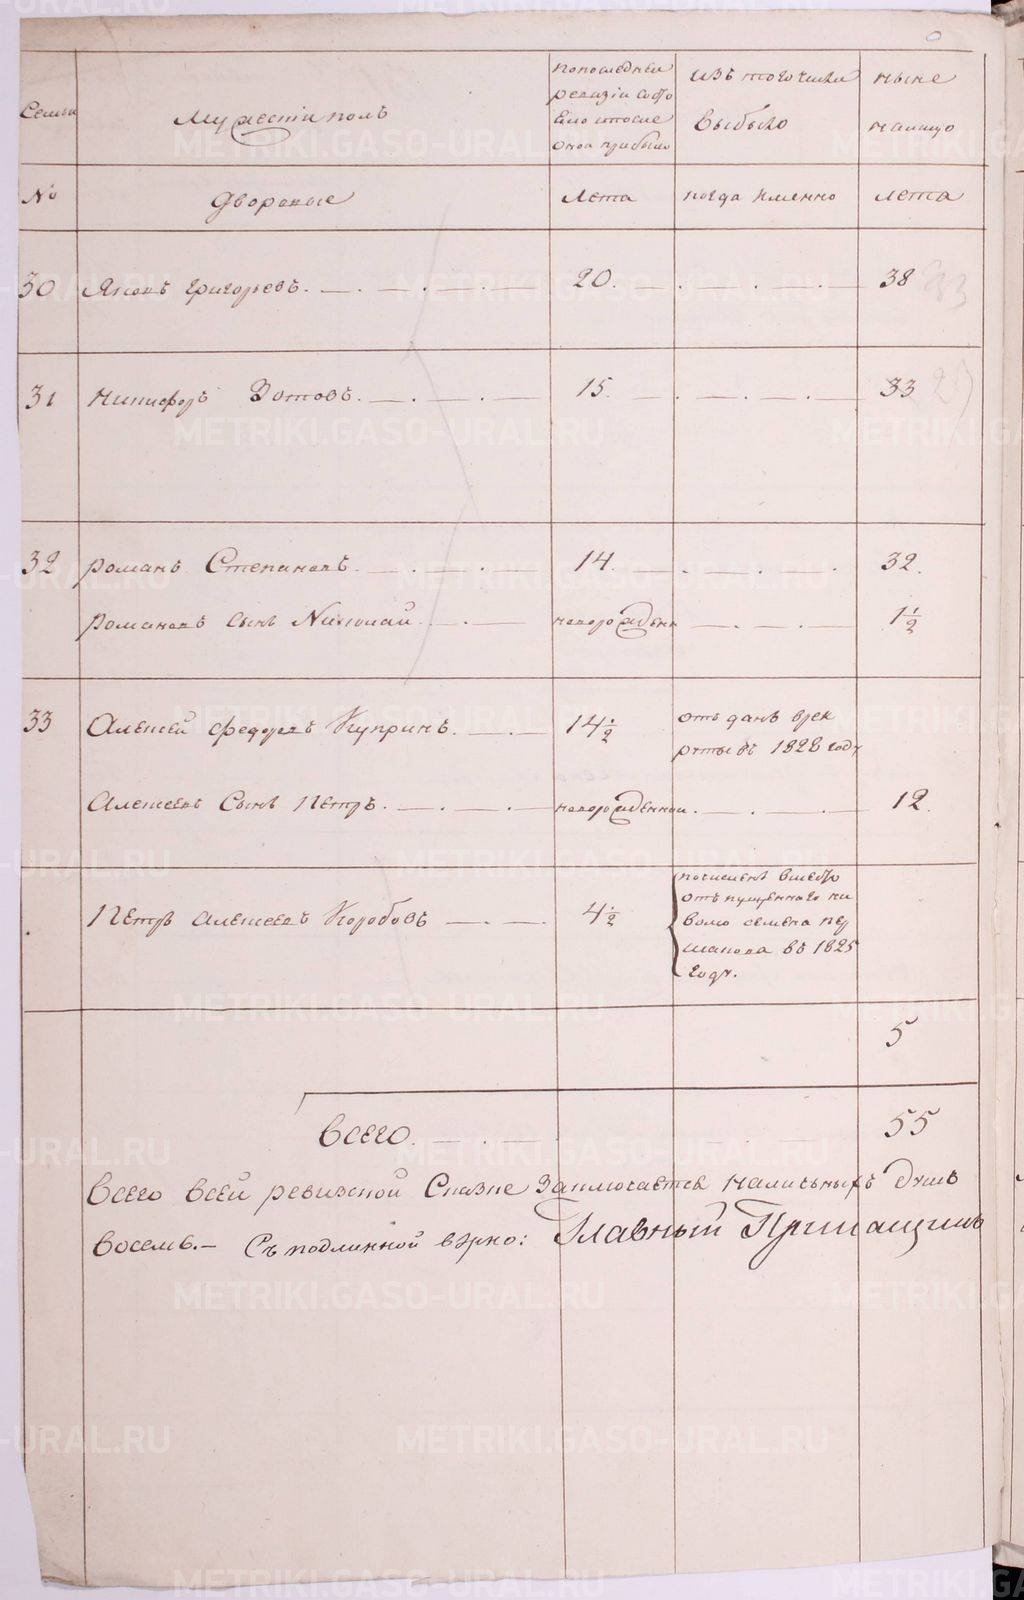 Семьи
Мужескій полъ
по последней
ревизіи состо
яло и после
оной прибыло
изъ того числа
выбыло
ныне
налицо
№
дворовые
Лета
когда именно
лета
30 Яковъ Григорьевъ. 20. 38
31 Никифоръ Зотовъ. 15. 33
32 романъ Степановъ. 14. 32.
романовъ сынъ Николай. новорожденн 1 1/2
33 Алексей Федоровъ Купринъ. 14 1/2
отданъ врек
руты въ 1828 году
Алексеевъ Сынъ Петръ. новорожденной. 12.
Петръ Алексеевъ Коробовъ 4 1/2
почисленъ вместо
отпущеннаго на
волю семена пер
шакова въ 1825
году.
5
всего. 55
Всего всей ревизской Сказке Заключается наличныхъ душъ
восемь.— Съ подлинной верно: Главный Прикащикъ
METRIKI.GASO-URAL.RU